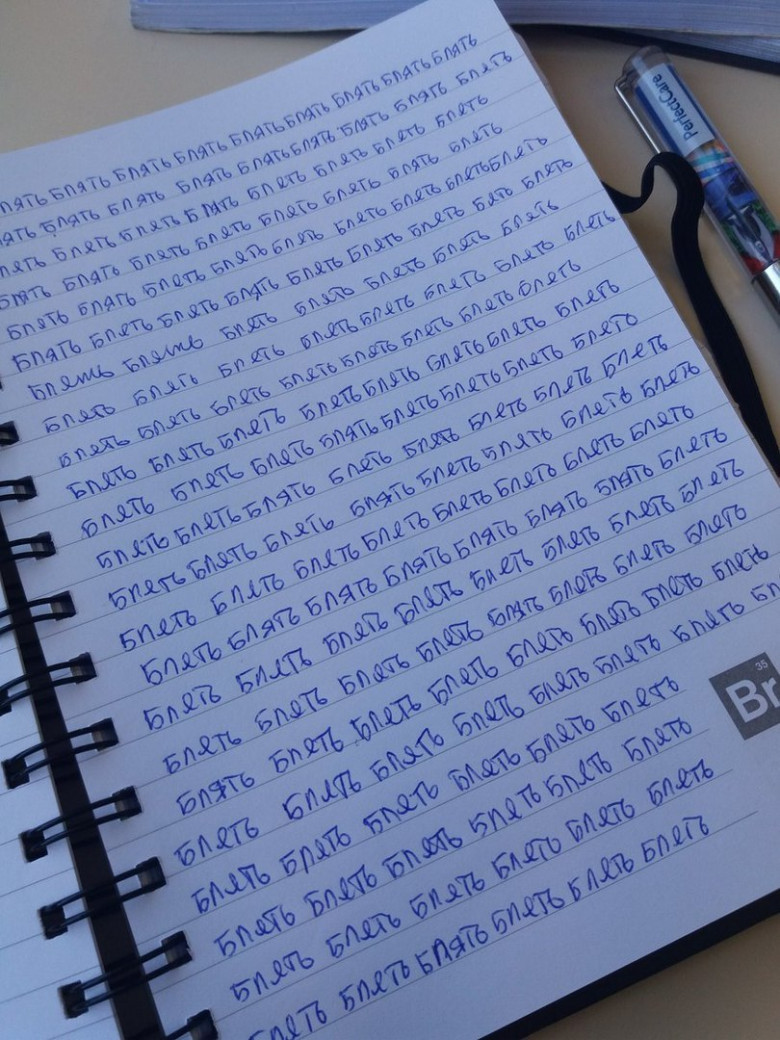 ЛЯТЬ БЛЯТЬ БЛЯТЬ БЛЯТЬ БЛЯТЬ БЛЯТЬ БЛЯТЬ БЛЯТЬ БЛЯТЬ
ЯТЬ БЛЯТЬ БЛЯТЬ БЛЯТЬ БЛЯТЬ БЛЯТЬ БЛЯТЬ БЛЯТЬ БЛЯТЬ
ЛЯТЬ БЛЯТЬ БЛЯТЬ БЛЯТЬ БЛЯТЬ БЛЯТЬ БЛЯТЬ БЛЯТЬ
БЛЯТЬ БЛЯТЬ БЛЯТЬ БЛЯТЬ БЛЯТЬ БЛЯТЬ БЛЯТЬ БЛЯТЬ
БЛЯТЬ БЛЯТЬ БЛЯТЬ БЛЯТЬ БЛЯТЬ БЛЯТЬ БЛЯТЬ БЛЯТЬ БЛЯТЬ
БЛЯТЬ БЛЯТЬ БЛЯТЬ БЛЯТЬ БЛЯТЬ БЛЯТЬ БЛЯТЬ БЯТЬ БЛЯТЬ
Блять блять БЛЯТЬ БЛЯТЬ БЛЯТЬ БЛЯТЬ БЛЯТЬ
БЛЯТЬ БЛЯТЬ БЛЯТЬ БЛЯТЬ БЛЯТЬ БЛЯТЬ БЛЯТЬ БЛЯТЬ
БЛЯТЬ БЛЯТЬ БЛЯТЬ БЛЯТЬ БЛЯТЬ БЛЯТЬ БЛЯТЬ БЛЯТЬ
БЛЯТЬ БЛЯТЬ БЛЯТЬ БЛЯТЬ БЛЯТЬ БЛЯТЬ БЛЯТЬ БЛЯТЬ
БЛЯТЬ БЛЯТЬ БЛЯТЬ БЛЯТЬ БЛЯТЬ БЛЯТЬ БЛЯТЬ БЛЯТЬ
БЛЯТЬ БЛЯТЬ БЛЯТЬ БЛЯТЬ БЛЯТЬ БЛЯТЬ БЛЯТЬ БЛЯТЬ
БЛЯТЬ БЛЯТЬ БЛЯТЬ БЛЯТЬ БЛЯТЬ БЛЯТЬ БЛЯТЬ БЛЯТЬ
БЛЯТЬ БЛЯТЬ БЛЯТЬ БЛЯТЬ БЛЯТЬ БЛЯТЬ БЛЯТЬ БЛЯТЬ
БЛЯТЬ БЛЯТЬ БЛЯТЬ БЛЯТЬ БЛЯТЬ БЛЯТЬ БЛЯТЬ БЛЯТЬ
БЛЯТЬ БЛЯТЬ БЛЯТЬ БЛЯТЬ БЛЯТЬ БЛЯТЬ БЛЯТЬ БЛЯТЬ
БЛЯТЬ БЛЯТЬ БЛЯТЬ БЛЯТЬ БЛЯТЬ БЛЯТЬ БЛЯТЬ БЛЯТЬ
БЛЯТЬ БЛЯТЬ БЛЯТЬ БЛЯТЬ БЛЯТЬ БЛЯТЬ БЛЯТЬ БЛЯТЬ
БЛЯТЬ БЛЯТЬ БЛЯТЬ БЛЯТЬ БЛЯТЬ БЛЯТЬ БЛЯТЬ БЛ
БЛЯТЬ БЛЯТЬ БЛЯТЬ БЛЯТЬ БЛЯТЬ БЛЯТЬ
БЛЯТЬ БЛЯТЬ БЛЯТЬ БЛЯТЬ БЛЯТЬ БЛЯТЬ
БЛЯТЬ БЛЯТЬ БЛЯТЬ БЛЯТЬ БЛЯТЬ БЛЯТЬ
БЛЯТЬ БЛЯТЬ БЛЯТЬ БЛЯТЬ БЛЯТЬ БЛЯТЬ
PerfectCare
35
Br